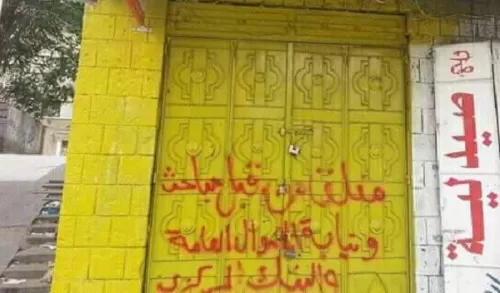 مغلق من قبل مباحث
ونيابة الاموال العامة
والبنك المركزي
صيدلية